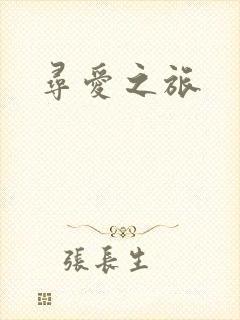 尋愛之旅
張長生